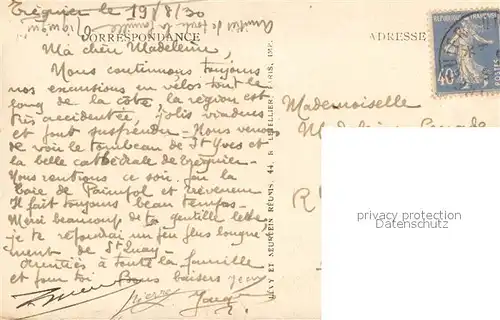 Tréguier le 19/8/30
CORRESPONDANCE
ADRESSE
Ma chère Madeleine,
Nous continuons toujours
nos excursions en vélos tout le
long de la côte, la région est
très accidentée, jolis viaducs
et pont suspendu - Nous venons
de voir le tombeau de St Yves et
la belle cathédrale de Tréguier -
Nous rentrons ce soir par la
baie de Paimpol et
Il fait toujours beau temps -
Merci beaucoup de ta gentille lettre
je te répondrai un peu plus longue
ment de St Quay -
Amitiés à toute la famille
et pour toi Bons baisers
Pierre
Mademoiselle
Madeleine
R
LÉVY ET NEURDEIN RÉUNIS, 44, R. LETELLIER, PARIS, IMP.
40
privacy protection
Datenschutz